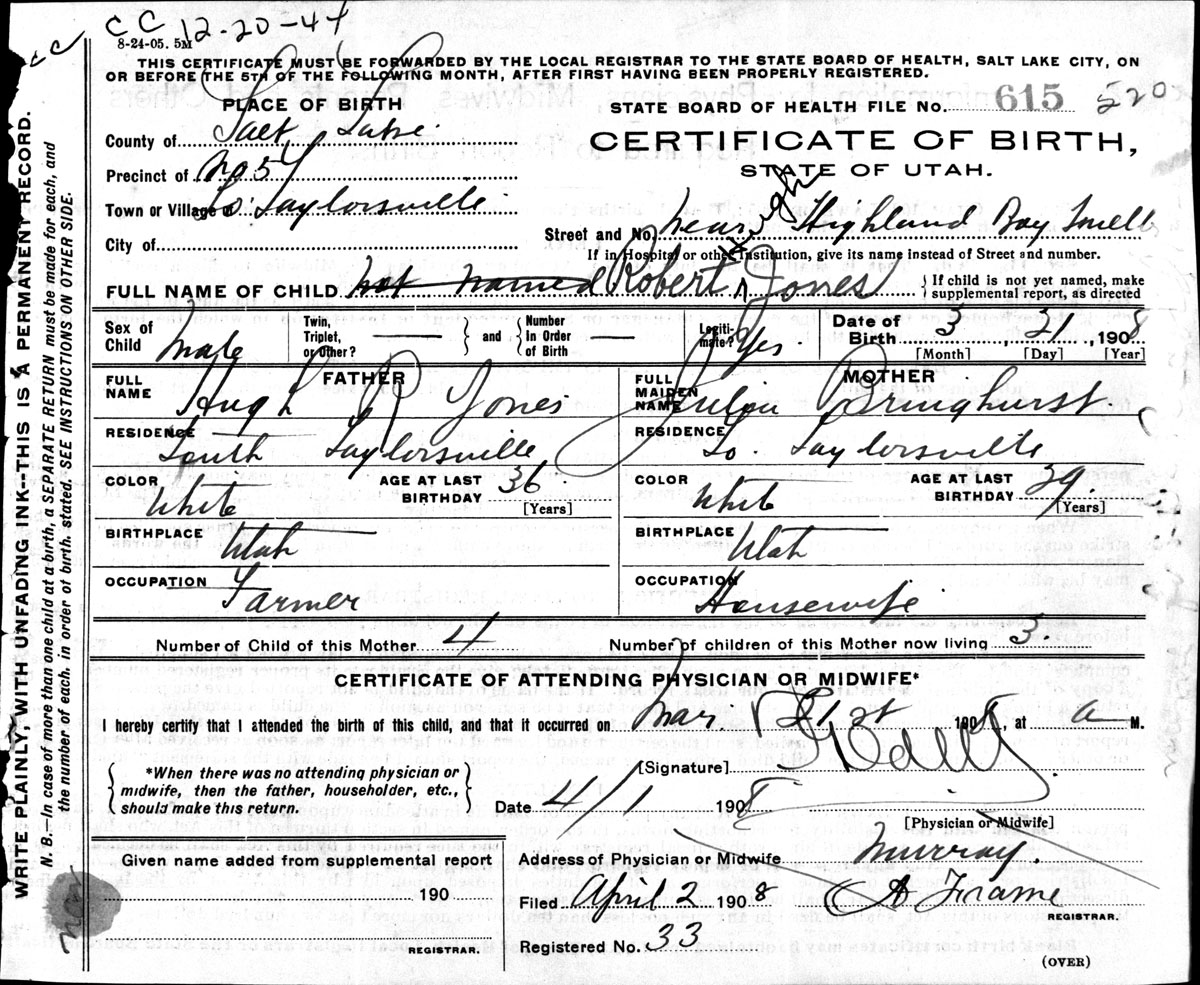 CC 12-20-44
CC
8-24-05. 5M
THIS CERTIFICATE MUST BE FORWARDED BY THE LOCAL REGISTRAR TO THE STATE BOARD OF HEALTH, SALT LAKE CITY, ON
OR BEFORE THE 5TH OF THE FOLLOWING MONTH, AFTER FIRST HAVING BEEN PROPERLY REGISTERED.
PLACE OF BIRTH
STATE BOARD OF HEALTH FILE No. 615 220
County of Salt Lake
CERTIFICATE OF BIRTH,
STATE OF UTAH.
Precinct of No 54
Town or Village So. Taylorsville
Street and No. near Highland Boy Smelt
City of
If in Hospital or other Institution, give its name instead of Street and number.
FULL NAME OF CHILD not named Robert Hugh Jones { If child is not yet named, make supplemental report, as directed
Sex of Child Male Twin, Triplet, or Other? and Number In Order of Birth Legiti-mate? Yes Date of Birth 3, 21, 1908
[Month] [Day] [Year]
FATHER
MOTHER
FULL NAME Hugh R Jones
FULL MAIDEN NAME Bringhurst
RESIDENCE South Taylorsville
RESIDENCE So. Taylorsville
COLOR White AGE AT LAST BIRTHDAY 36 [Years]
COLOR White AGE AT LAST BIRTHDAY 39 [Years]
BIRTHPLACE Utah
BIRTHPLACE Utah
OCCUPATION Farmer
OCCUPATION Housewife
Number of Child of this Mother 4 Number of children of this Mother now living 3.
CERTIFICATE OF ATTENDING PHYSICIAN OR MIDWIFE*
I hereby certify that I attended the birth of this child, and that it occurred on Mar. 21st 1908, at a M.
[Signature]
*When there was no attending physician or
midwife, then the father, householder, etc.,
should make this return.
Date 4/1 1908
[Physician or Midwife]
Given name added from supplemental report
190
REGISTRAR.
Address of Physician or Midwife Murray.
Filed April 2 1908 A Frame
REGISTRAR.
Registered No. 33
(OVER)
WRITE PLAINLY, WITH UNFADING INK--THIS IS A PERMANENT RECORD.
N. B.—In case of more than one child at a birth, a SEPARATE RETURN must be made for each, and
the number of each, in order of birth, stated. SEE INSTRUCTIONS ON OTHER SIDE.